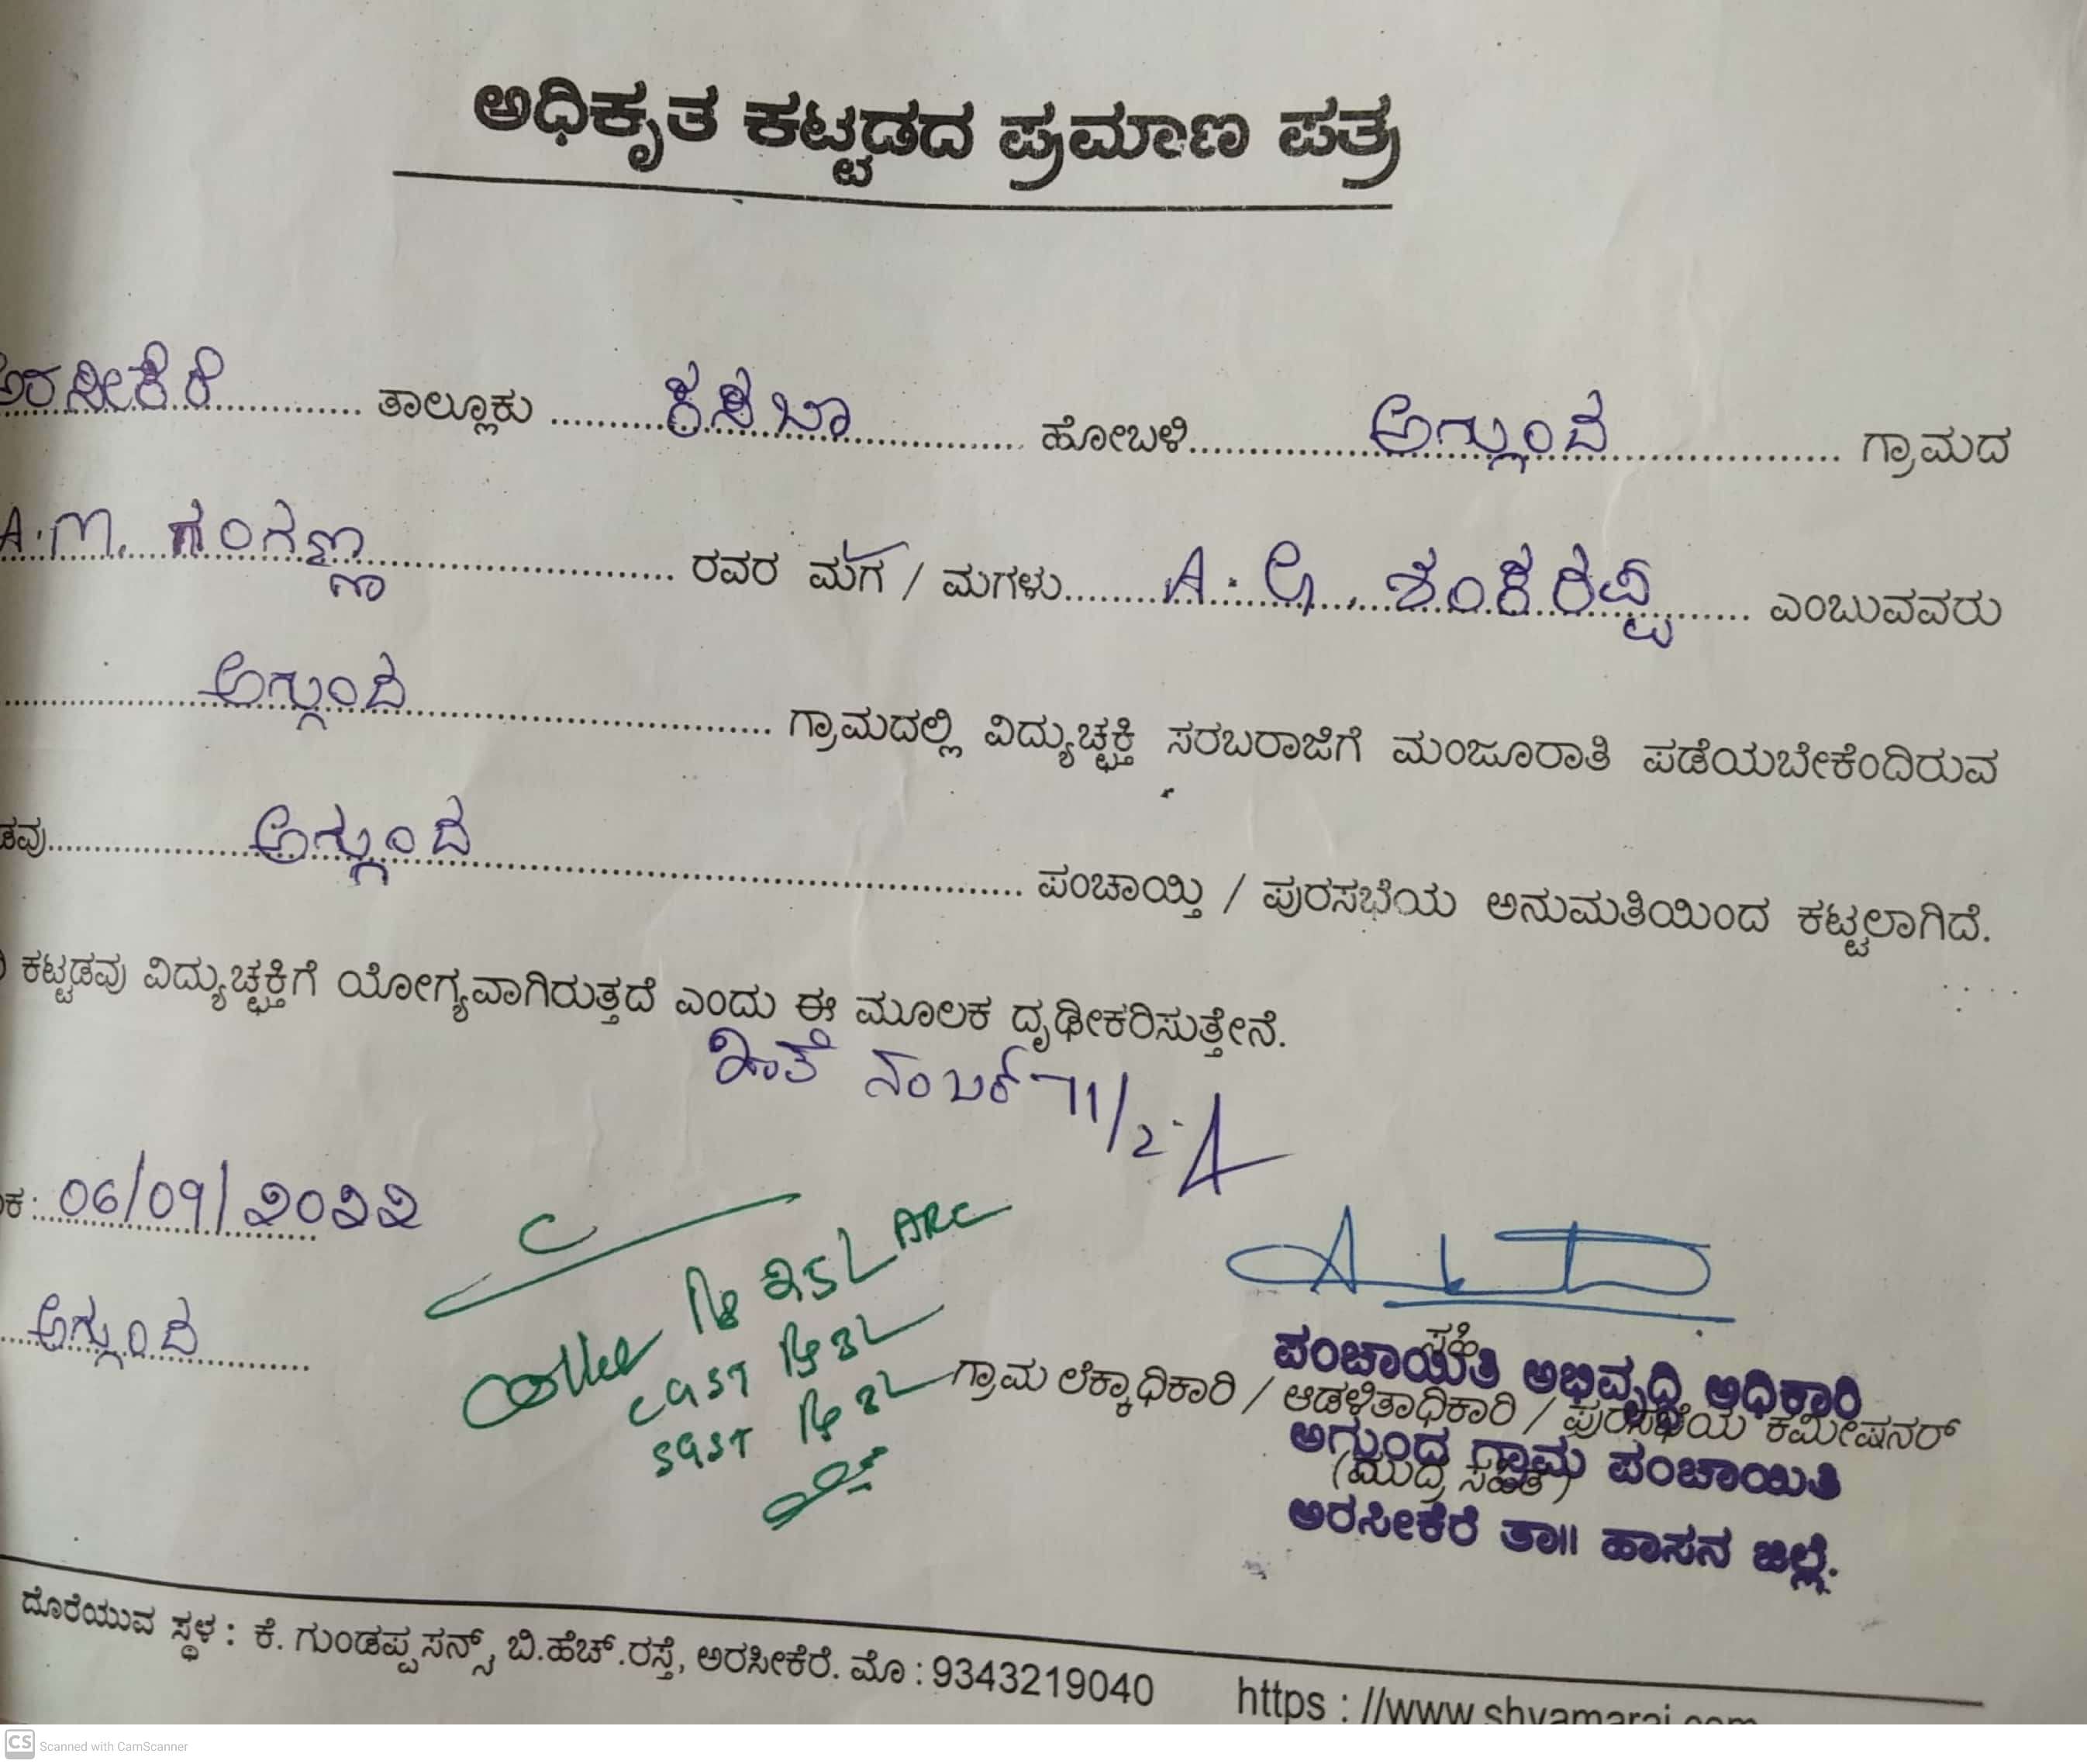 ಅಧಿಕೃತ ಕಟ್ಟಡದ ಪ್ರಮಾಣ ಪತ್ರ
ಅರಸೀಕೆರೆ ತಾಲ್ಲೂಕು ಕಸಬಾ ಹೋಬಳಿ ಅಗ್ಗುಂದ ಗ್ರಾಮದ
A.M. ಗಂಗಣ್ಣ ರವರ ಮಗ / ಮಗಳು A.G. ಶಂಕರಪ್ಪ ಎಂಬುವವರು
ಅಗ್ಗುಂದ ಗ್ರಾಮದಲ್ಲಿ ವಿದ್ಯುಚ್ಛಕ್ತಿ ಸರಬರಾಜಿಗೆ ಮಂಜೂರಾತಿ ಪಡೆಯಬೇಕೆಂದಿರುವ
ಡವು ಅಗ್ಗುಂದ ಪಂಚಾಯ್ತಿ / ಪುರಸಭೆಯ ಅನುಮತಿಯಿಂದ ಕಟ್ಟಲಾಗಿದೆ.
ಕಟ್ಟಡವು ವಿದ್ಯುಚ್ಛಕ್ತಿಗೆ ಯೋಗ್ಯವಾಗಿರುತ್ತದೆ ಎಂದು ಈ ಮೂಲಕ ದೃಢೀಕರಿಸುತ್ತೇನೆ.
ಖಾತೆ ನಂಬರ್ 71/2
ಕ: 06/09/೨೦೨೨
ARC
CGST
SGST
ಅಗ್ಗುಂದ
ಸಹಿ
ಪಂಚಾಯಿತಿ ಅಭಿವೃದ್ಧಿ ಅಧಿಕಾರಿ
ಗ್ರಾಮ ಲೆಕ್ಕಾಧಿಕಾರಿ / ಆಡಳಿತಾಧಿಕಾರಿ / ಪುರಸಭೆಯ ಕಮೀಷನರ್
ಅಗ್ಗುಂದ ಗ್ರಾಮ ಪಂಚಾಯಿತಿ
(ಮುದ್ರೆ ಸಹಿತ)
ಅರಸೀಕೆರೆ ತಾ॥ ಹಾಸನ ಜಿಲ್ಲೆ.
ದೊರೆಯುವ ಸ್ಥಳ : ಕೆ. ಗುಂಡಪ್ಪ ಸನ್ಸ್, ಬಿ.ಹೆಚ್.ರಸ್ತೆ, ಅರಸೀಕೆರೆ. ಮೊ : 9343219040 https : //www.shyamaraj.com
CS Scanned with CamScanner